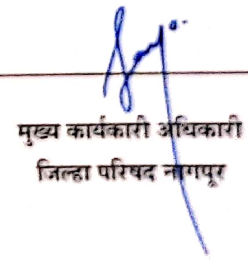 मुख्य कार्यकारी अधिकारी
जिल्हा परिषद नागपूर